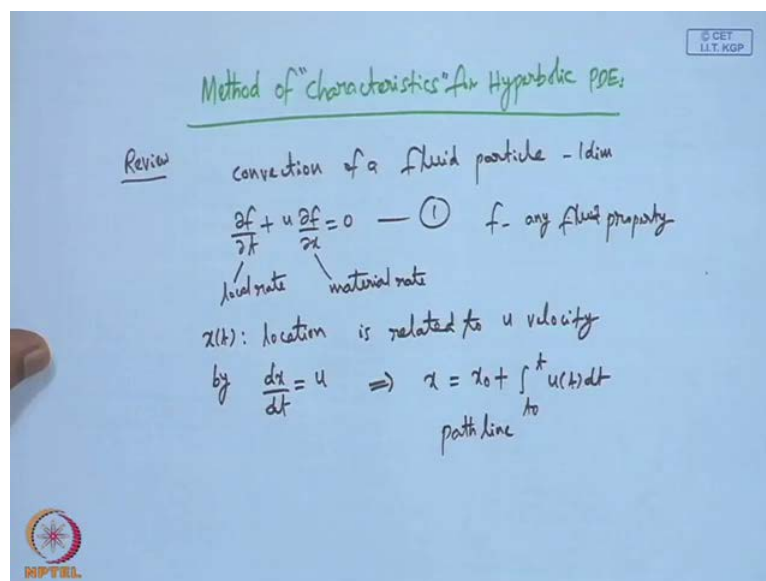 © CET
I.I.T. KGP
Method of "Characteristics" for Hyperbolic PDEs
Review convection of a fluid particle - 1 dim
∂f/∂t + u ∂f/∂x = 0 — ① f - any fluid property
local rate material rate
x(t): location is related to u velocity
by dx/dt = u ⇒ x = x₀ + ∫_{t₀}^{t} u(t) dt
path line
NPTEL